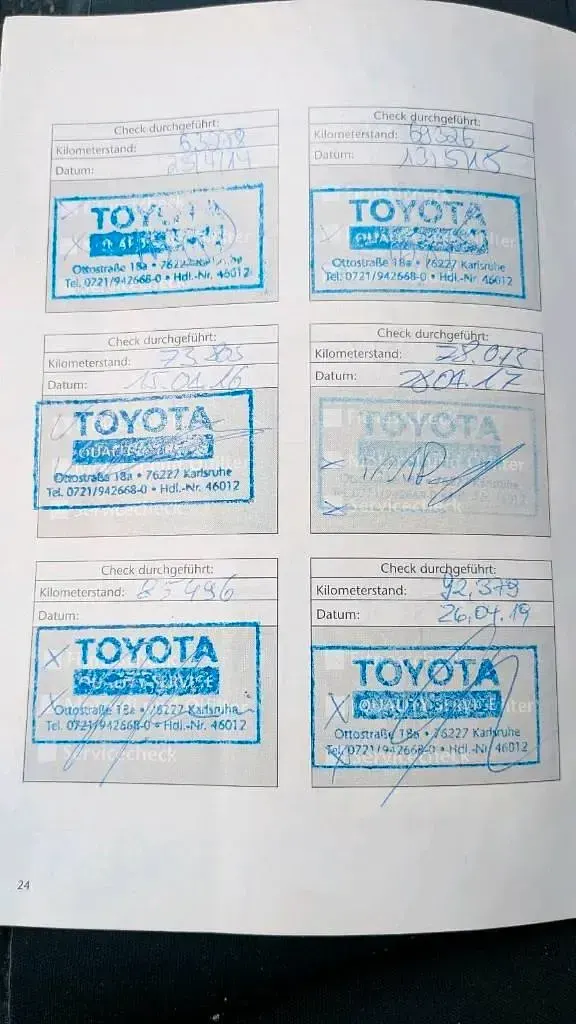 Check durchgeführt:
Kilometerstand: 63278
Datum: 29/4/14
TOYOTA
Ottostraße 18a • 76227 Karlsruhe
Tel. 0721/942668-0 • Hdl.-Nr. 46012
Check durchgeführt:
Kilometerstand: 69326
Datum: 13/5/15
TOYOTA
QUALITY
Ottostraße 18a • 76227 Karlsruhe
Tel. 0721/942668-0 • Hdl.-Nr. 46012
Check durchgeführt:
Kilometerstand:
Datum: 15.04.16
TOYOTA
QUALITY SERVICE
Ottostraße 18a • 76227 Karlsruhe
Tel. 0721/942668-0 • Hdl.-Nr. 46012
Check durchgeführt:
Kilometerstand: 78.013
Datum: 28.04.17
TOYOTA
Servicecheck
Check durchgeführt:
Kilometerstand: 85496
Datum:
TOYOTA
QUALITY SERVICE
Ottostraße 18a • 76227 Karlsruhe
Tel. 0721/942668-0 • Hdl.-Nr. 46012
Servicecheck
Check durchgeführt:
Kilometerstand: 92.379
Datum: 26.04.19
TOYOTA
QUALITY SERVICE
Ottostraße 18a • 76227 Karlsruhe
Tel. 0721/942668-0 • Hdl.-Nr. 46012
Servicecheck
24